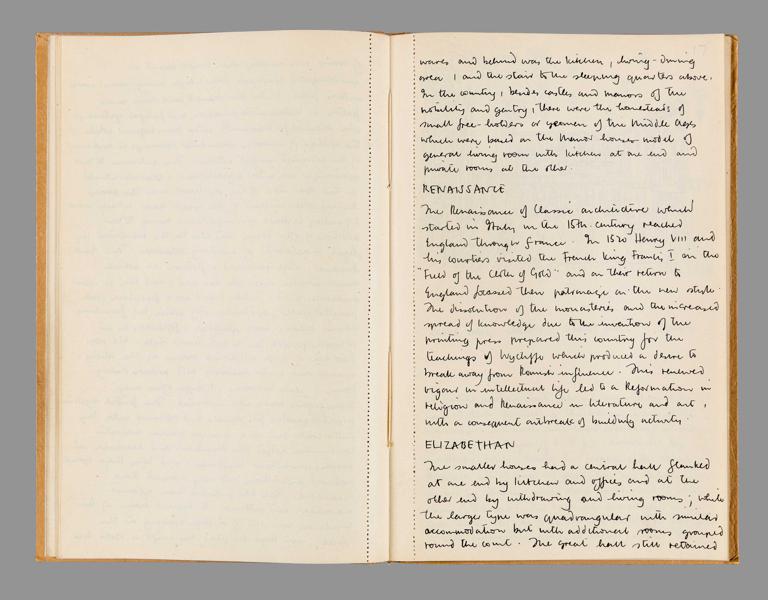 wares and behind was the kitchen, living-dining
area, and the stair to the sleeping quarters above.
In the country, besides castles and manors of the
nobility and gentry, there were the homesteads of
small free-holders or yeomen of the Middle Ages
which were based on the Manor house model of
general living room with kitchen at one end and
private rooms at the other.
RENAISSANCE
The Renaissance of Classic architecture which
started in Italy in the 15th century reached
England through France. In 1520 Henry VIII and
his courtiers visited the French King Francis I on the
"Field of the Cloth of Gold" and on their return to
England focused their patronage on the new style.
The dissolution of the monasteries and the increased
spread of knowledge due to the invention of the
printing press prepared this country for the
teachings of Wycliffe which produced a desire to
break away from Romish influence. This renewed
vigour in intellectual life led to a Reformation in
religion and Renaissance in literature and art,
with a consequent outbreak of building activity.
ELIZABETHAN
The smaller houses had a central hall flanked
at one end by kitchen and offices and at the
other end by withdrawing and living rooms; while
the large type was quadrangular with similar
accommodation but with additional rooms grouped
round the court. The great hall still retained